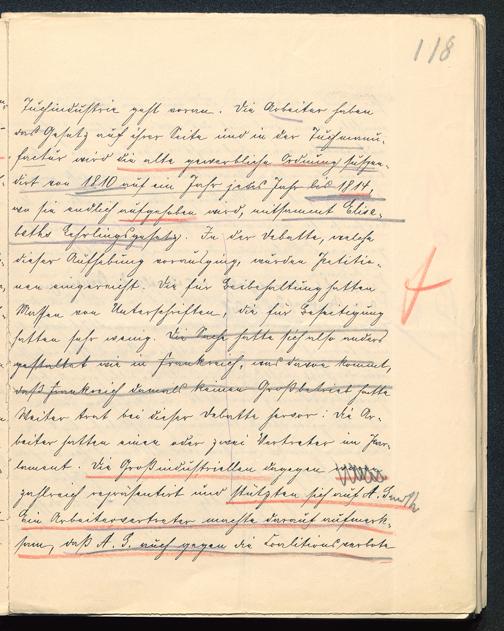 118
Tuchindustrie geht voran. Die Arbeiter haben
das Gesetz auf ihrer Seite und in der Tuchmanu-
factur wird die alte gewerbliche Ordnung suspen-
dirt von 1810 auf ein Jahr jedes Jahr bis 1814,
wo sie endlich aufgehoben wird, mitsammt Elisa-
beths Lehrlingsgesetz. In der Debatte, welche
dieser Aufhebung vorausging, wurden Petitio-
nen eingereicht. Die für Beibehaltung hatten
Massen von Unterschriften, die für Beseitigung
hatten sehr wenig. Die Sache hatte sich also anders
gestaltet wie in Frankreich, was davon kommt,
daß Frankreich damals keinen Großbetrieb hatte
Weiter trat bei dieser Debatte hervor: die Ar-
beiter hatten einen oder zwei Vertreter im Par-
lament. Die Großindustriellen dagegen
zahlreich repräsentirt und stützten sich auf A. Smith
Ein Arbeitervertreter machte darauf aufmerk-
sam, daß A. S. auch gegen die Coalitionsverbote